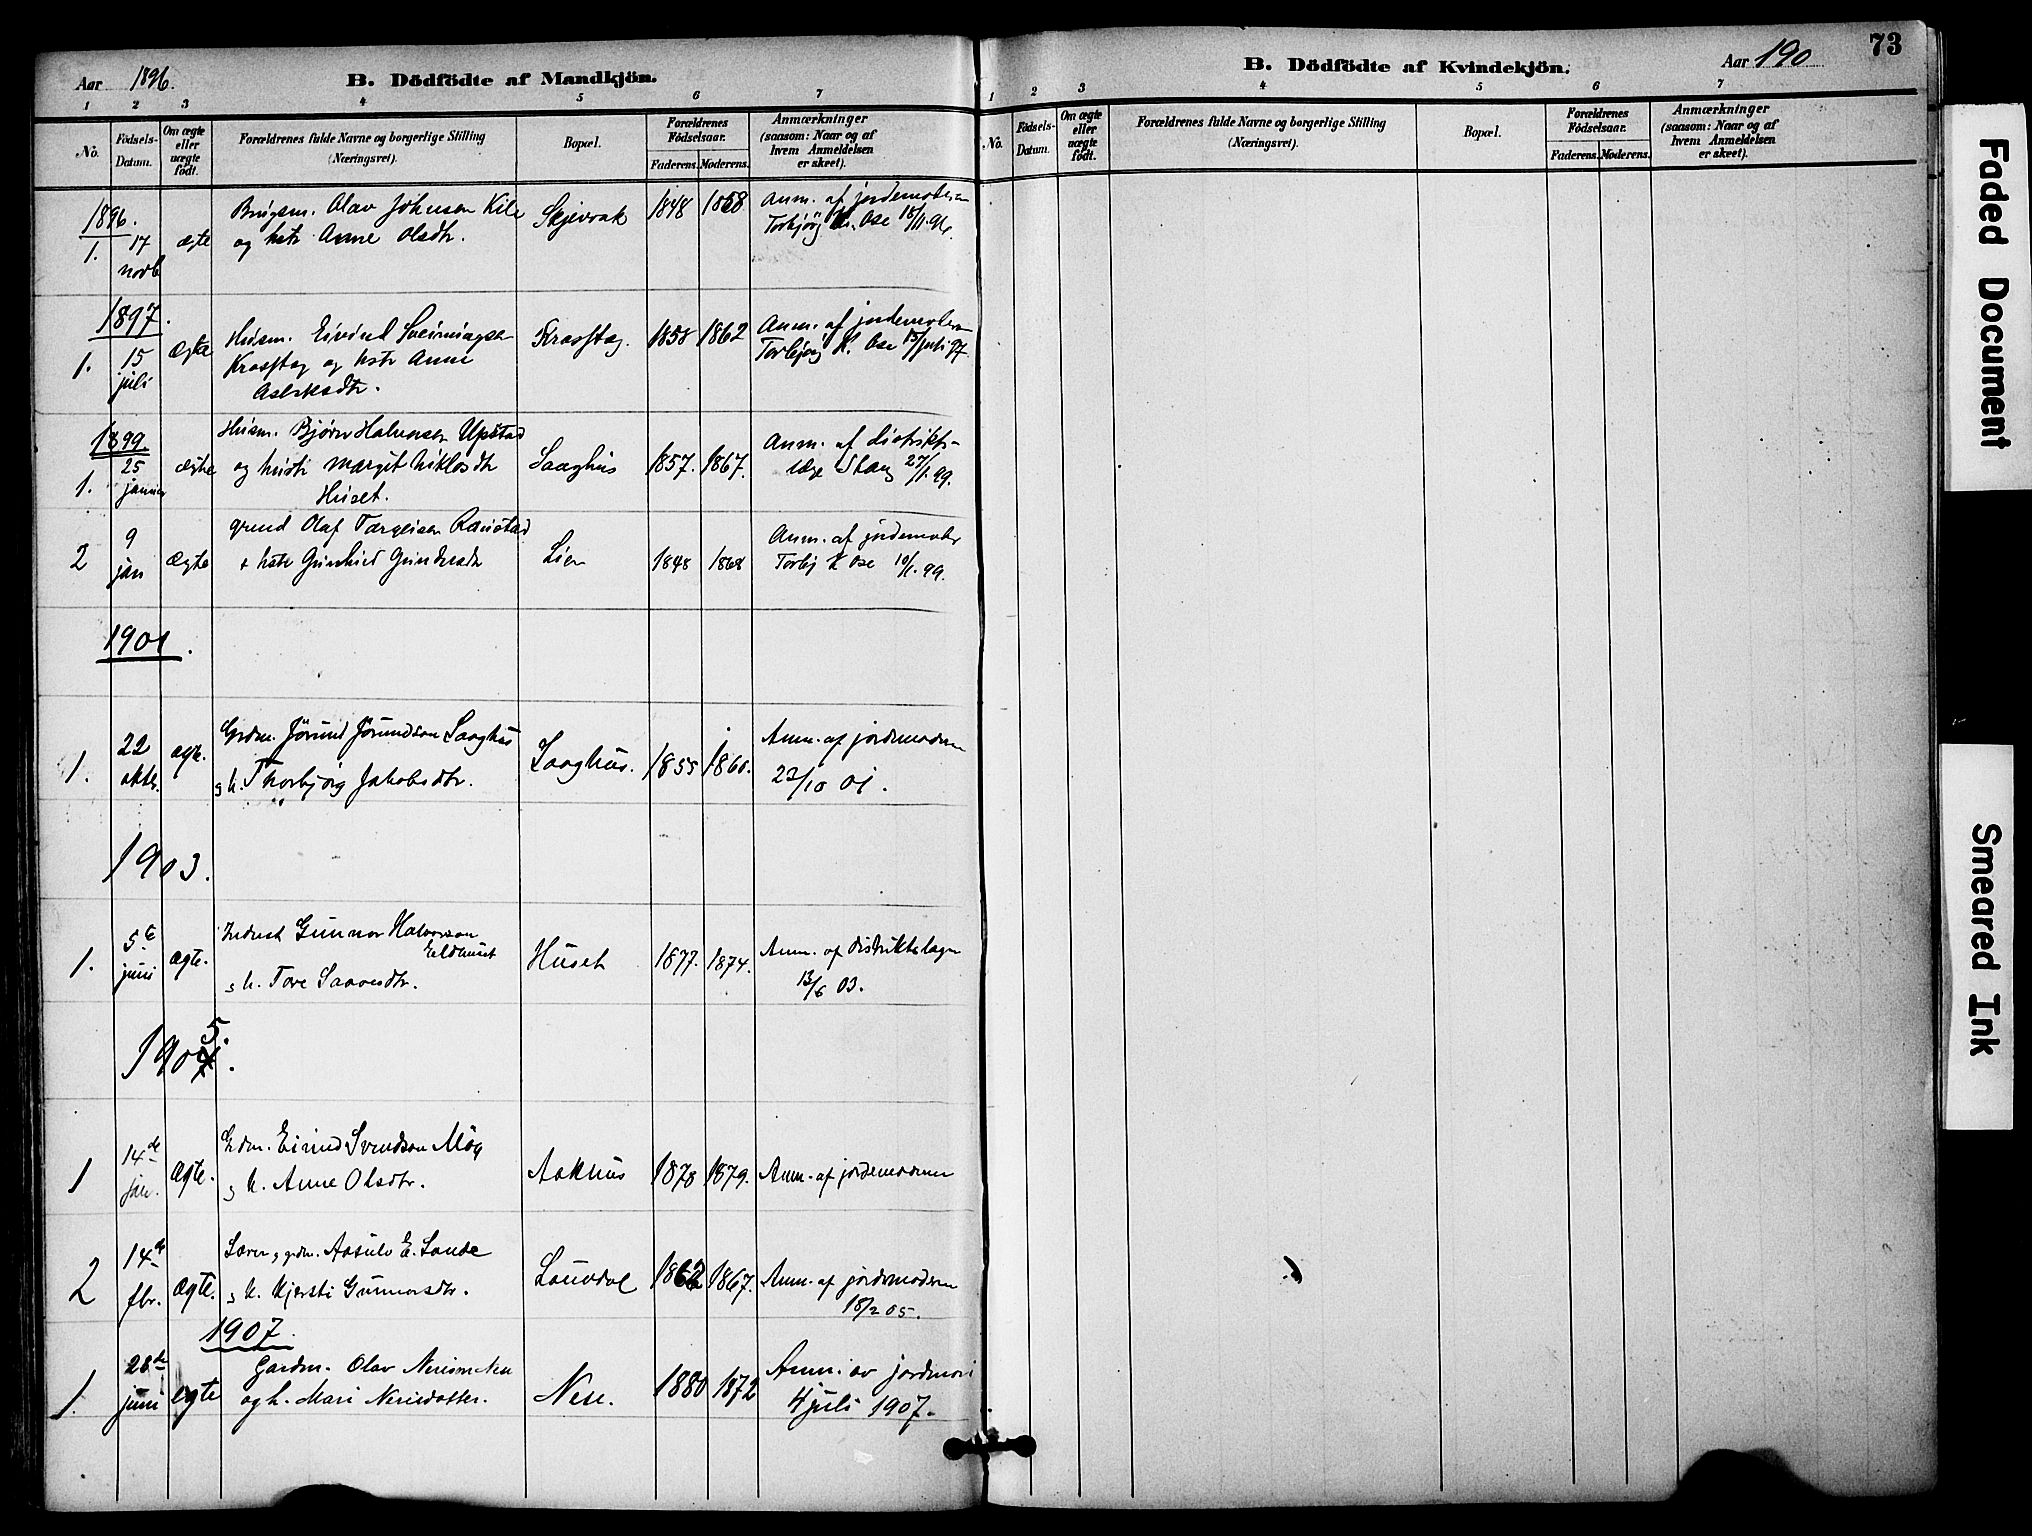 Aar 1896. B. Dödfödte af Mandkjön.
1 2 3 4 5 6 7
No. Födsels-Datum. Om ægte eller uægte født. Forældrenes fulde Navne og borgerlige Stilling (Næringsvei). Bopæl. Forældrenes Födselsaar. Faderens. Moderens. Anmærkninger (saasom: Naar og af hvem Anmeldelsen er skeet).
1896.
1. 17 novb ægte Brugsm. Olav Johnsen Kile Skjevrak 1848 1868 Anm. af jordemoderen
og hstr Anne Olsdtr. Torbjörg K. Ose 18/11.96.
1897.
1. 15 juli Ægte Husm. Eivind Sveinungsen Kraastag. 1858 1862 Anm. af jordemoderen
Kraastag og hstr Anne Torbjørg K. Ose 15/juli 97.
Aslaksdtr.
1899
1. 25 januar ægte Husm. Bjørn Halvorsen Upstad Saaghus 1857. 1867. Anm. af distrikts-
og hustr Margit Niklosdtr læge Stang 27/1.99.
Huset.
2 9 jan Ægte grmd Olaf Targeisen Raustad Lien 1848 1868 Anm. af jordemoder
+ hstr Gunhild Gundersdtr Torbj K Ose 10/1.99.
1901.
1. 22 oktbr. ægte. Grdm. Jörund Jörundson Saaghus Saaghus. 1855 1860. Anm. af jordmoderen
og h. Thorbjörg Jakobsdtr. 22/10 01.
1903.
1. 5te juni ægte. Inderst Gunnar Halvorson Huset 1877. 1874. Anm. af distriktslægen
Eldhuset
og h. Tore Saavesdtr. 13/6 03.
1905.
1 14de jan. Ægte. Grdm. Eivind Svendson Mög Aakhus 1878 1879. Anm. af jordemoderen
og h. Anne Olsdtr.
2 14de fbr. Ægte. Lærer og grdm. Aasulv E. Lande Lauvdal 1862 1867. Anm. af jordemoderen
og h. Kjersti Gunnarsdtr. 18/2 05.
1907.
1. 28de juni egte Gardm. Olav Nerison Nese Nese. 1880 1872 Anm. av jordmori
og h. Mari Nerisdotter. 4 juli 1907.
B. Dödfödte af Kvindekjön. Aar 190 73
1 2 3 4 5 6 7
No. Födsels-Datum. Om ægte eller uægte födt. Forældrenes fulde Navne og borgerlige Stilling (Næringsvei). Bopæl. Forældrenes Födselsaar. Faderens. Moderens. Anmærkninger (saasom: Naar og af hvem Anmeldelsen er skeet).
Faded Document
Smeared Ink